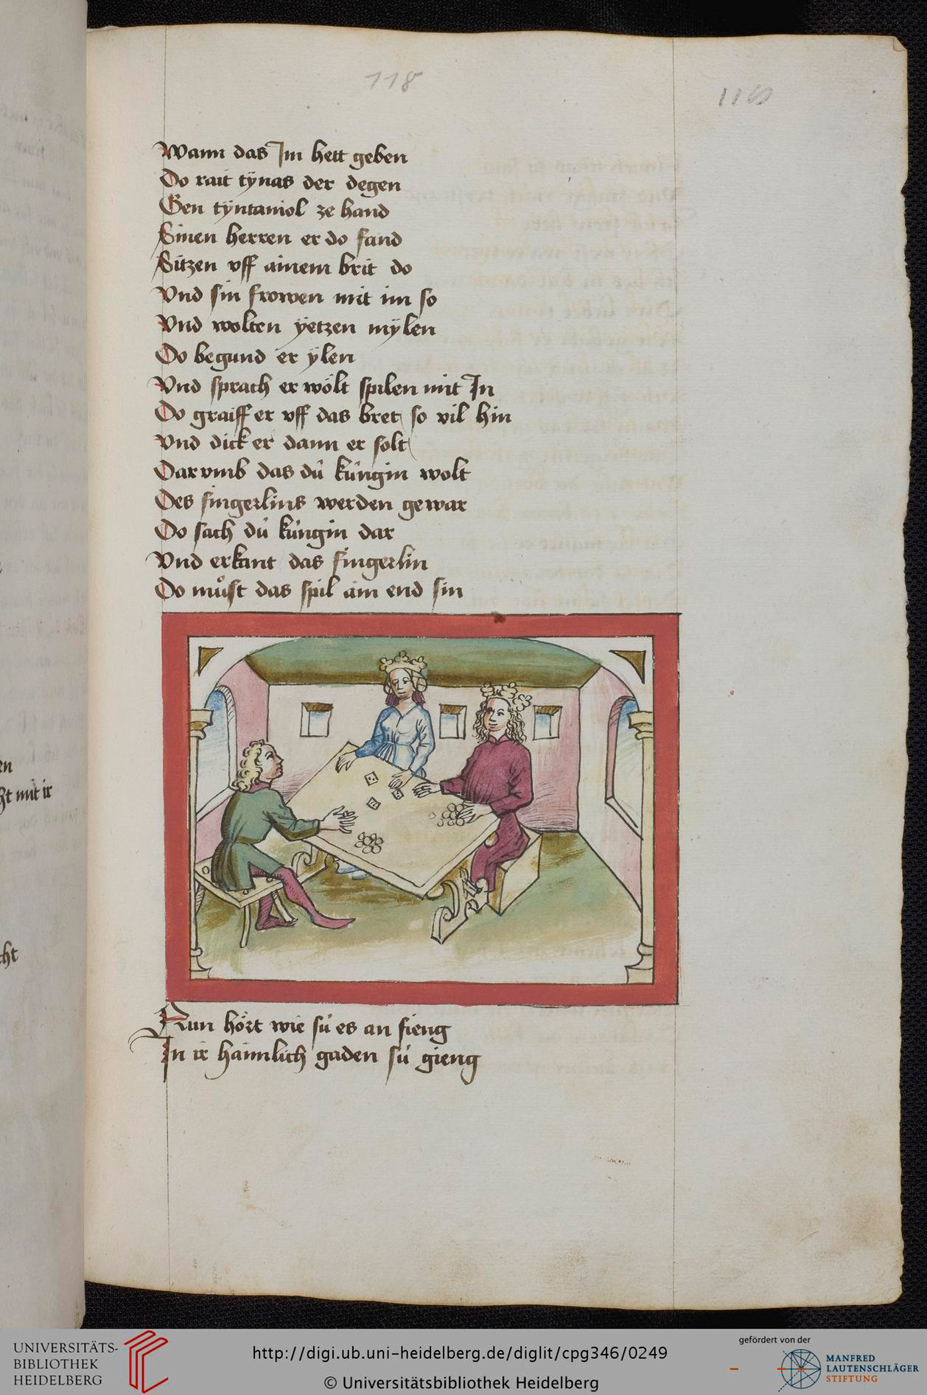 118
116
Wann das Im hett geben
Do rait tÿnas der degen
Gen tÿntaniol ze hand
Sinen herren er do fand
Sitzen vff ainem brit do
Vnd sin frowen mit im so
Vnd wolten ÿetzen mÿlen
Do begund er ÿlen
Vnd sprach er wölt spilen mit In
Do graiff er vff das bret so vil hin
Vnd dick er dann er solt
Dar vmb das dú kúngin wolt
Des fingerlins werden gewar
Do sach dú kúngin dar
Vnd erkant das fingerlin
Do muͦst das spil am end sin
Nun hört wie sú es an fieng
In ir haimlich gaden sú gieng
UNIVERSITÄTS-
BIBLIOTHEK
HEIDELBERG
http://digi.ub.uni-heidelberg.de/diglit/cpg346/0249
© Universitätsbibliothek Heidelberg
gefördert von der
MANFRED
LAUTENSCHLÄGER
STIFTUNG